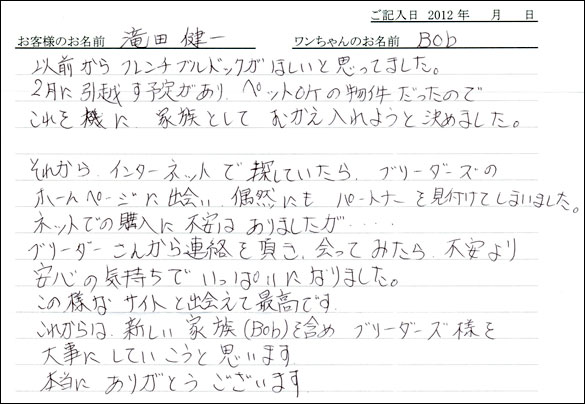 ご記入日 2012 年 月 日
お客様のお名前 滝田 健一 ワンちゃんのお名前 Bob
以前から フレンチブルドックがほしいと思ってました。
2月に引越す予定があり、ペットOKの物件だったので
これを機に 家族として むかえ入れようと決めました。
それから、インターネットで探していたら、ブリーダーズの
ホームページに出会い、偶然にも パートナーを見付けてしまいました。
ネットでの購入に不安は ありましたが・・・・
ブリーダーさんから連絡を頂き、会ってみたら、不安より
安心の気持ちで いっぱいになりました。
この様な サイトと出会えて最高です。
これからは、新しい家族(Bob)を含め ブリーダーズ様を
大事にしていこうと思います
本当に ありがとう ございます